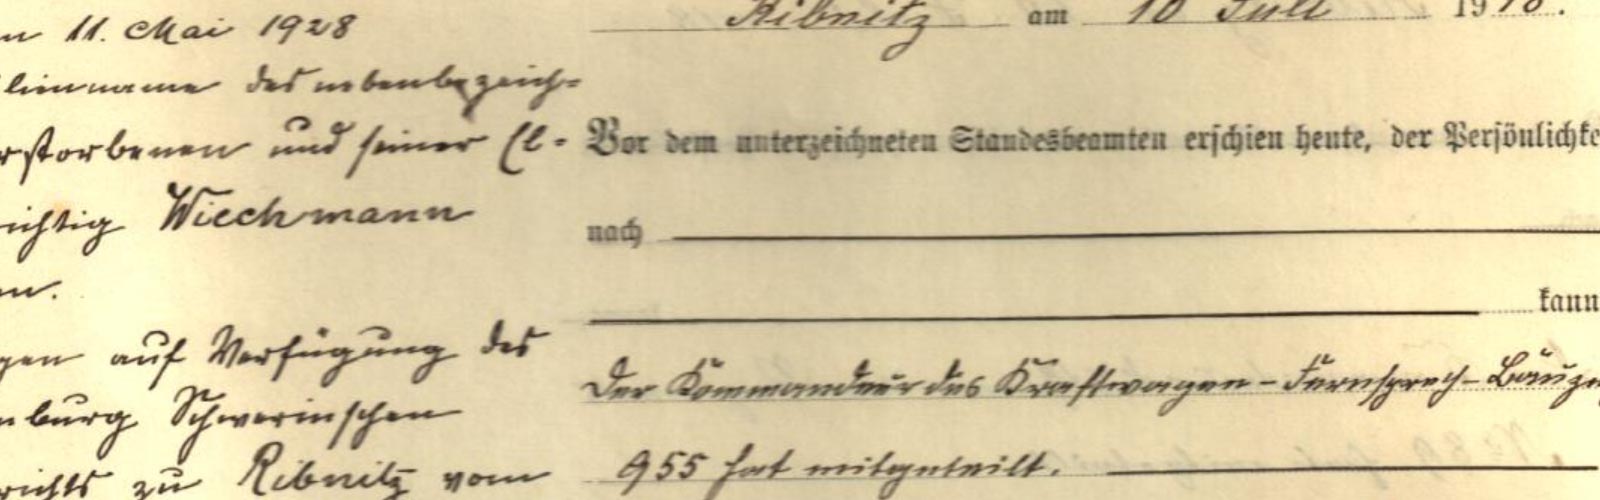 n 11. Mai 1928
lienname des nebenbezeich=
rstorbenen und seiner El-
richtig Wiechmann
en.
gen auf Verfügung des
nburg Schwerinschen
richts zu Ribnitz vom
Ribnitz am 10 Juli 1918.
Vor dem unterzeichneten Standesbeamten erschien heute, der Persönlichke
nach
kann
Der Kommandeur des Kraftwagen-Fernsprech-Bauzu
955 hat mitgeteilt.